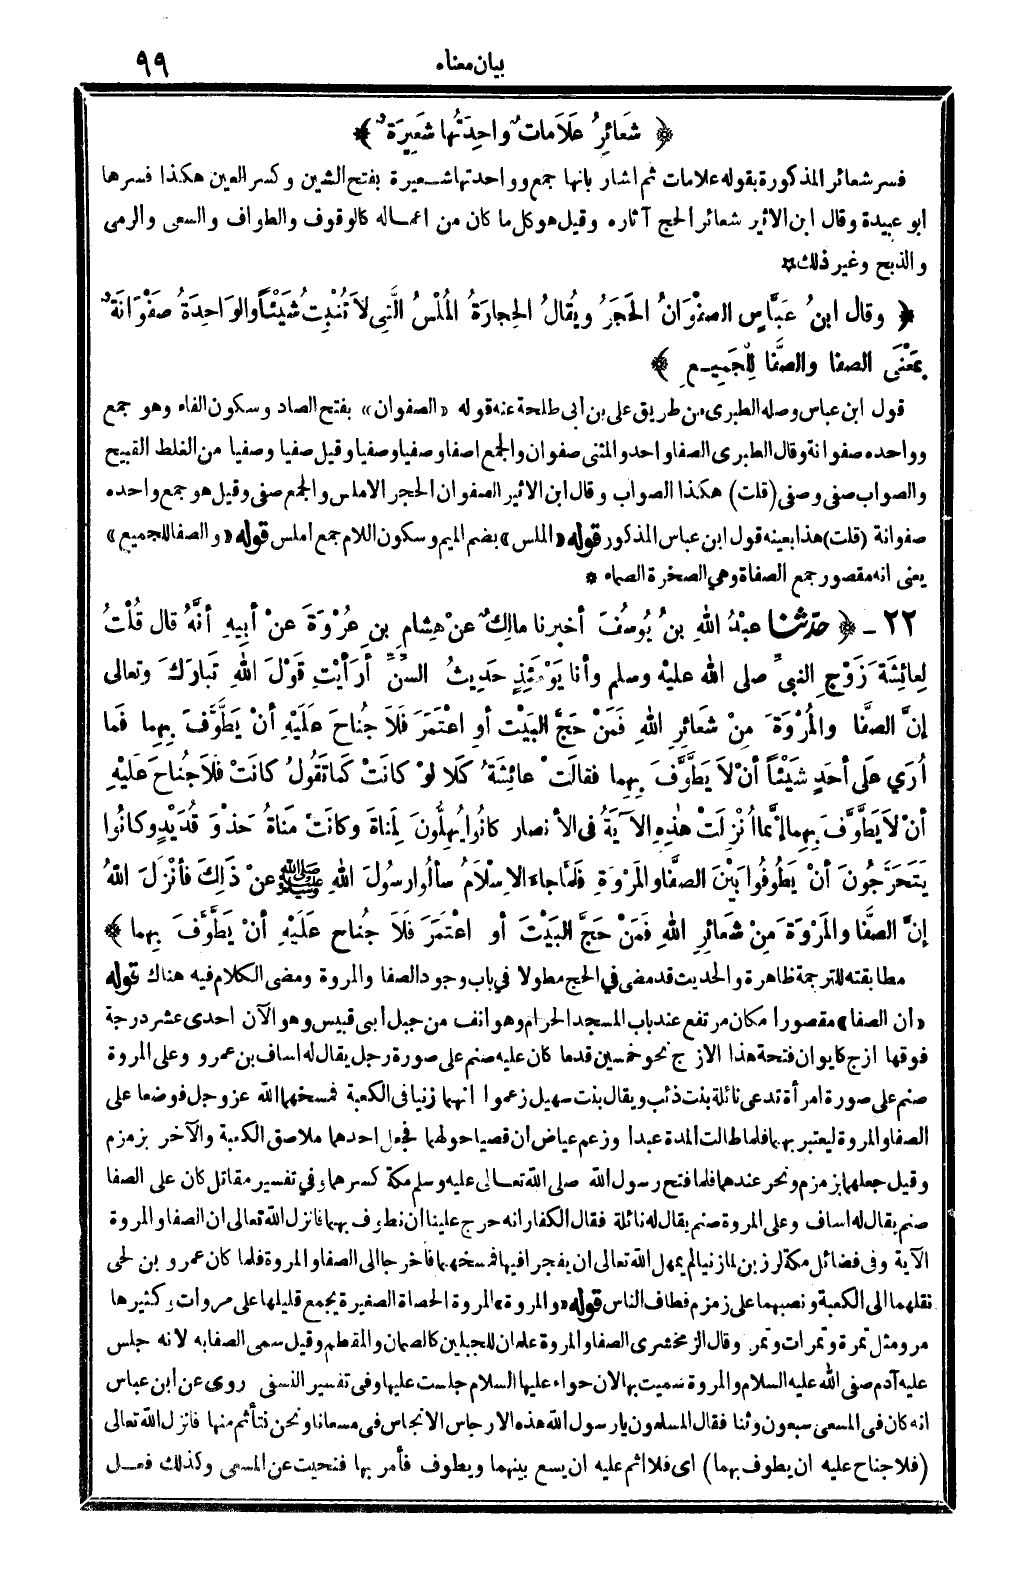 بيان معناه ٩٩
﴿ شَعَائِرُ عَلَامَاتٌ واحِدَتُها شَعِيرَةٌ ﴾
فسر شعائر المذكورة بقوله علامات ثم اشار بانها جمع وواحدتها شـعيرة بفتح الشين وكسر العين هكذا فسرها
ابو عبيدة وقال ابن الاثير شعائر الحج آثاره وقيل هو كل ما كان من اعمـاله كالوقوف والطواف والسعى والرمى
والذبح وغير ذلك*
﴿ وقال ابنُ عَبَّاسٍ الصفْوَانُ الحَجَرُ ويُقالُ الحِجارَةُ المُلْسُ الَّتِي لاَ تُنْبِتُ شَيْئاً والوَاحِدَةُ صَفْوَانَةٌ
بِمَعْنَى الصفا والصَّفا لِلْجَمِيـعِ ﴾
قول ابن عباس وصله الطبرى من طريق على بن أبى طلحة عنه قوله «الصفوان» بفتح الصاد وسكون الفاء وهو جمع
وواحده صفوانة وقال الطبرى الصفا واحد والمثنى صفوان والجمع اصفاء وصفيا وصفيا وقيل صفيا وصفيا من الغلط القبيح
والصواب صفى وصفى (قلت) هكذا الصواب وقال ابن الاثير الصفوان الحجر الاملس والجمع صفى وقيل هو جمع واحده
صفوانة (قلت) هذا بعينه قول ابن عباس المذكور قوله «الملس» بضم الميم وسكون اللام جمع املس قوله «والصفا للجميع»
يعنى انه مقصور جمع الصفاة وهي الصخرة الصماء *
٢٢ ـ ﴿ حَدَّثَنَا عبْدُ اللهِ بنُ يُوسُفَ أخبرنا مالِكٌ عنْ هِشامِ بنِ عُرْوَةَ عنْ أبيهِ أنَّهُ قال قُلْتُ
لِعائِشَةَ زَوْجِ النبيِّ صلى الله عليْه وسلم وأنا يَوْمَئِذٍ حَدِيثُ السِّنِّ أرَأيْتِ قَوْلَ اللهِ تَبارَكَ وتعالى
إنَّ الصَّفا والمَرْوَةَ مِنْ شَعائِرِ اللهِ فَمَنْ حَجَّ البَيْتَ أوِ اعْتَمَرَ فَلاَ جُناحَ عَلَيْهِ أنْ يَطَّوَّفَ بِهِما فَما
أُرَي عَلَى أحَدٍ شَيْئاً أنْ لاَ يَطَّوَّفَ بِهِما فقالَتْ عائِشَةُ كَلاَّ لوْ كانَتْ كَما تَقُولُ كانَتْ فَلاَ جُناحَ عَلَيْهِ
أنْ لاَ يَطَّوَّفَ بِهِما إنَّما أُنْزِلَتْ هَذِهِ الآيَةُ فى الأنصارِ كانُوا يُهِلُّونَ لِمَناةَ وكانَتْ مَناةُ حَذْوَ قُدَيْدٍ وكانُوا
يَتَحَرَّجُونَ أنْ يَطُوفُوا بَيْنَ الصَّفا والمَرْوَةِ فَلَمَّا جاءَ الإسْلاَمُ سألُوا رسُولَ اللهِ ﷺ عنْ ذَلِكَ فأنْزَلَ اللهُ
إنَّ الصَّفا والمَرْوَةَ مِنْ شَعائِرِ اللهِ فَمَنْ حَجَّ البَيْتَ أوِ اعْتَمَرَ فَلاَ جُناحَ عَلَيْهِ أنْ يَطَّوَّفَ بِهِما ﴾
مطابقته للترجمة ظاهرة والحديث قد مضى في الحج مطولا في باب وجود الصفا والمروة ومضى الكلام فيه هناك قوله
«أن الصفا» مقصورا مكان مرتفع عند باب المسجد الحرام وهو انف من جبل أبى قبيس وهو الآن احدى عشر درجة
فوقها ازج كايوان فتحة هذا الازج نحو خمسين قدما كان عليه صنم على صورة رجل يقال له اساف بن عمرو وعلى المروة
صنم على صورة امرأة تدعى نائلة بنت ذئب ويقال بنت سهيل زعموا انهما زنيا فى الكعبة فمسخهما الله عز وجل فوضعا على
الصفا والمروة ليعتبر بهما فلما طالت المدة عبدا وزعم عياض ان قصيا حولهما فجعل احدهما ملاصق الكعبة والآخر بزمزم
وقيل جعلهما بزمزم ونحر عندهما فلما فتح رسول الله صلى الله تعـالى عليه وسلم مكة كسرهما وفي تفسير مقاتل كان على الصفا
صنم يقال له اساف وعلى المروة صنم يقال له نائلة فقال الكفار انه حرج علينا ان نطوف بهما فانزل الله تعالى ان الصفا والمروة
الآية وفى فضائل مكة لرزين لما زنيا لم يمهل الله تعالى ان يفجرا فيها فمسخهما فأخرجا الى الصفا والمروة فلما كان عمرو بن لحى
نقلهما الى الكعبة ونصبهما على زمزم فطاف الناس قوله «والمروة» المروة الحصاة الصغيرة يجمع قليلها على مروات وكثيرها
مرو مثل تمرة وتمرات وتمر وقال الزمخشرى الصفا والمروة علمان للجبلين كالصمان والمقطم وقيل سمى الصفا به لانه جلس
عليه آدم صفى الله عليه السلام والمروة سميت بها لان حواء عليها السلام جلست عليها وفى تفسير النسفى روى عن ابن عباس
انه كان فى المسعى سبعون وثنا فقال المسلمون يارسول الله هذه الارجاس الانجاس فى مسعانا ونحن نتأثم منها فانزل الله تعالى
(فلا جناح عليه ان يطوف بهما) اى فلا اثم عليه ان يسع بينهما ويطوف فأمر بها فنحيت عن المسعى وكذلك فعـل